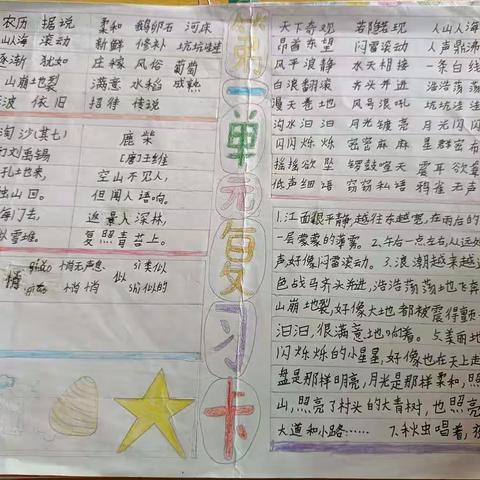 农历 据说
山人海 滚动
逐渐 犹如
山崩地裂
波 依旧
柔和 鹅卵石 河床
新鲜 修补 坑坑洼洼
庄稼 风俗 葡萄
满意 水稻 成熟
招待 传说
淘沙(其七)
刘禹锡
地来,
山回。
门去,
雪堆。
鹿柴
[唐]王维
空山不见人,
但闻人语响。
返景入深林,
复照青苔上。
悄 悄无声息
悄悄
似
第一单元复习卡
天下奇观 若隐若现 人山人海
昂首东望 闷雷滚动 人声鼎沸
风平浪静 水天相接 一条白线
白浪翻滚 齐头并进 浩浩荡荡
漫天卷地 风号浪吼 坑坑洼洼
沟水汩汩 月光镀亮 月光闪闪
闪闪烁烁 密密麻麻 星群密布
摇摇欲坠 锣鼓喧天 震耳欲
低声细语 窃窃私语 鸦雀无声
1.江面很平静,越往东越宽,在雨后的
一层蒙蒙的薄雾。 2.午后一点左右,从远处
声好像闷雷滚动。 3.浪潮越来越近
色战马齐头并进,浩浩荡荡地飞奔
山崩地裂,好像大地都被震得颤
汩汩,很满意地响着。
闪烁烁的小星星,好像也在天上走
盘是那样明亮,月光是那样柔和,照
山,照亮了村头的大青树,也照亮
大道和小路…… 7.秋虫唱着,夜